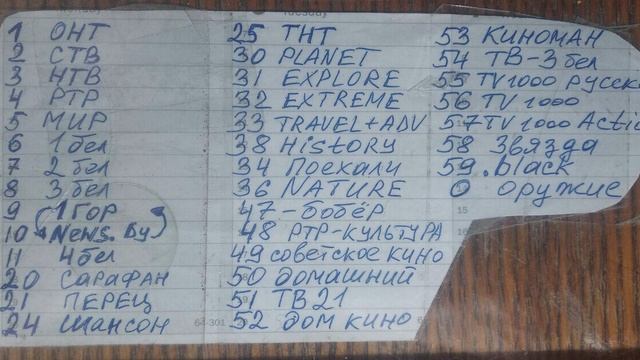 1 ОНТ
2 СТВ
3 НТВ
4 РТР
5 МИР
6 1 бел
7 2 бел
8 3 бел
9 1 ГОР
10 News. By
11 4 бел
20 САРАФАН
21 ПЕРЕЦ
24 ШАНСОН
25 ТНТ
30 PLANET
31 EXPLORE
32 EXTREME
33 TRAVEL+ADV
38 HiSTORY
34 Поехали
36 NATURE
47 - бобёр
48 РТР-КУЛЬТУРА
49 советское кино
50 домашний
51 ТВ 21
52 дом кино
53 КИНОМАН
54 ТВ-3 бел
55 TV1000 русск
56 TV 1000
57 TV 1000 Acti
58 Звязда
59 .black
0 оружие